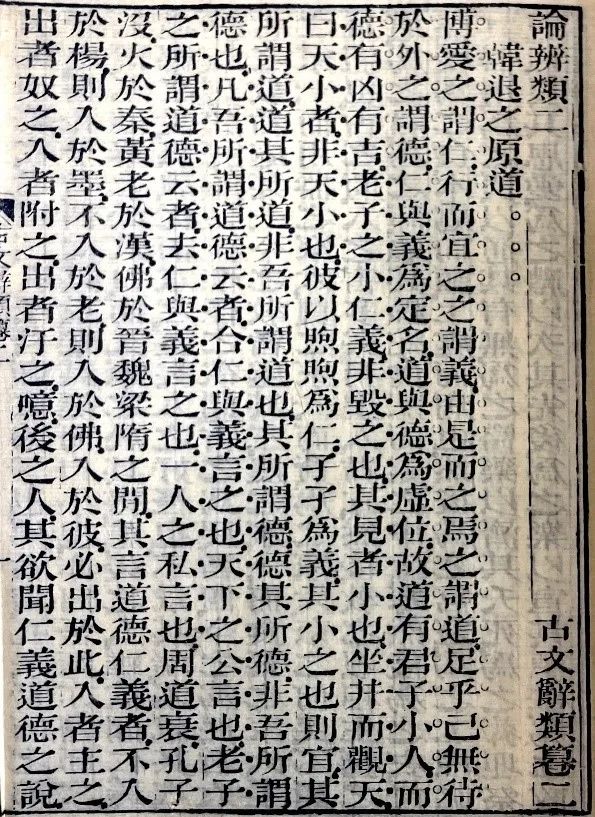 論辨類二 古文辭類纂二
韓退之原道
博愛之謂仁行而宜之之謂義由是而之焉之謂道足乎己無待
於外之謂德仁與義爲定名道與德爲虛位故道有君子小人而
德有凶有吉老子之小仁義非毀之也其見者小也坐井而觀天
曰天小者非天小也彼以煦煦爲仁孑孑爲義其小之也則宜其
所謂道道其所道非吾所謂道也其所謂德德其所德非吾所謂
德也凡吾所謂道德云者合仁與義言之也天下之公言也老子
之所謂道德云者去仁與義言之也一人之私言也周道衰孔子
沒火於秦黃老於漢佛於晉魏梁隋之閒其言道德仁義者不入
於楊則入於墨不入於老則入於佛入於彼必出於此入者主之
出者奴之入者附之出者汙之噫後之人其欲聞仁義道德之說